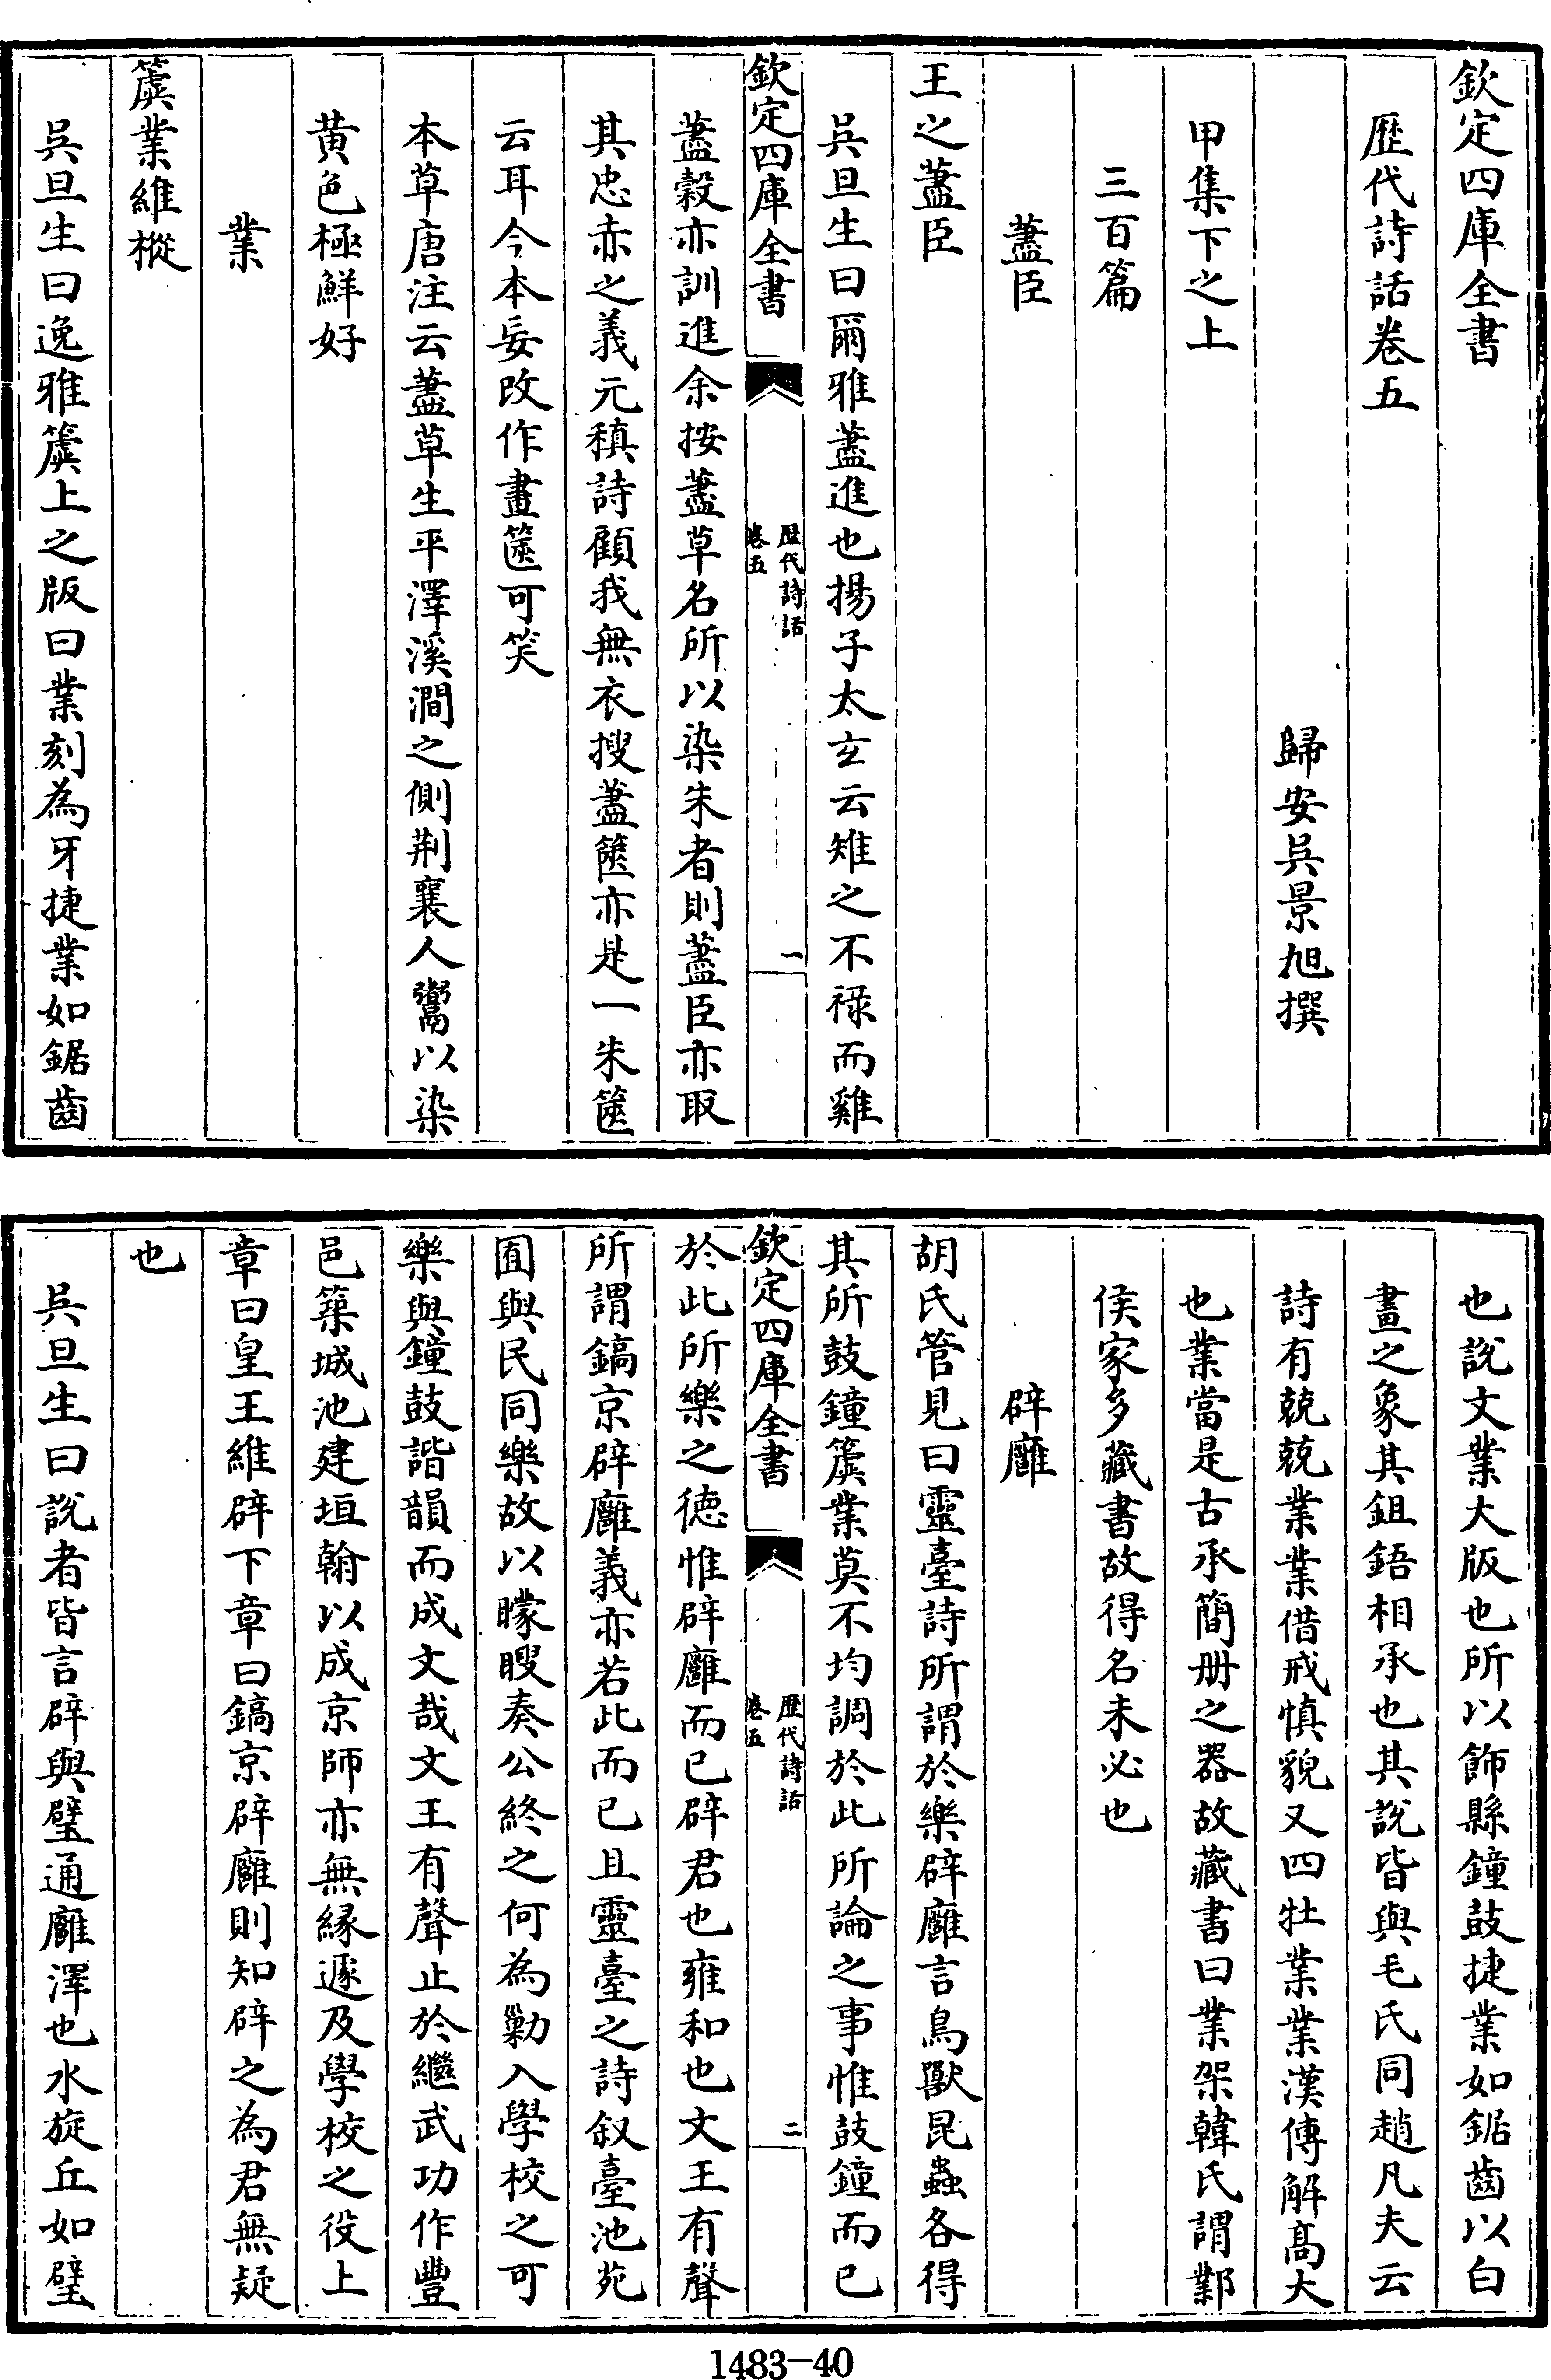 欽定四庫全書
歷代詩話卷五
歸安吳景旭撰
甲集下之上
三百篇
藎臣
王之藎臣
吳旦生曰爾雅藎進也揚子太玄云雉之不祿而雞
欽定四庫全書
歷代詩話
卷五
一
藎穀亦訓進余按藎草名所以染朱者則藎臣亦取
其忠赤之義元稹詩顧我無衣搜藎篋亦是一朱篋
云耳今本妄改作畫篋可笑
本草唐注云藎草生平澤溪澗之側荆襄人鬻以染
黃色極鮮好
業
簴業維樅
吳旦生曰逸雅簴上之版曰業刻為牙捷業如鋸齒
也說文業大版也所以飾縣鐘鼓捷業如鋸齒以白
畫之象其鉏鋙相承也其說皆與毛氏同趙凡夫云
詩有兢兢業業借戒慎貌又四牡業業漢傳解高大
也業當是古承簡冊之器故藏書曰業架韓氏謂鄴
侯家多藏書故得名未必也
辟廱
胡氏管見曰靈臺詩所謂於樂辟廱言鳥獸昆蟲各得
其所鼓鐘簴業莫不均調於此所論之事惟鼓鐘而已
欽定四庫全書
歷代詩話
卷五
二
於此所樂之德惟辟廱而已辟君也雍和也文王有聲
所謂鎬京辟廱義亦若此而已且靈臺之詩叙臺池苑
囿與民同樂故以矇瞍奏公終之何為勦入學校之可
樂與鐘鼓諧韻而成文哉文王有聲止於繼武功作豐
邑築城池建垣翰以成京師亦無緣遽及學校之役上
章曰皇王維辟下章曰鎬京辟廱則知辟之為君無疑
也
吳旦生曰說者皆言辟與璧通廱澤也水旋丘如璧
1483-40